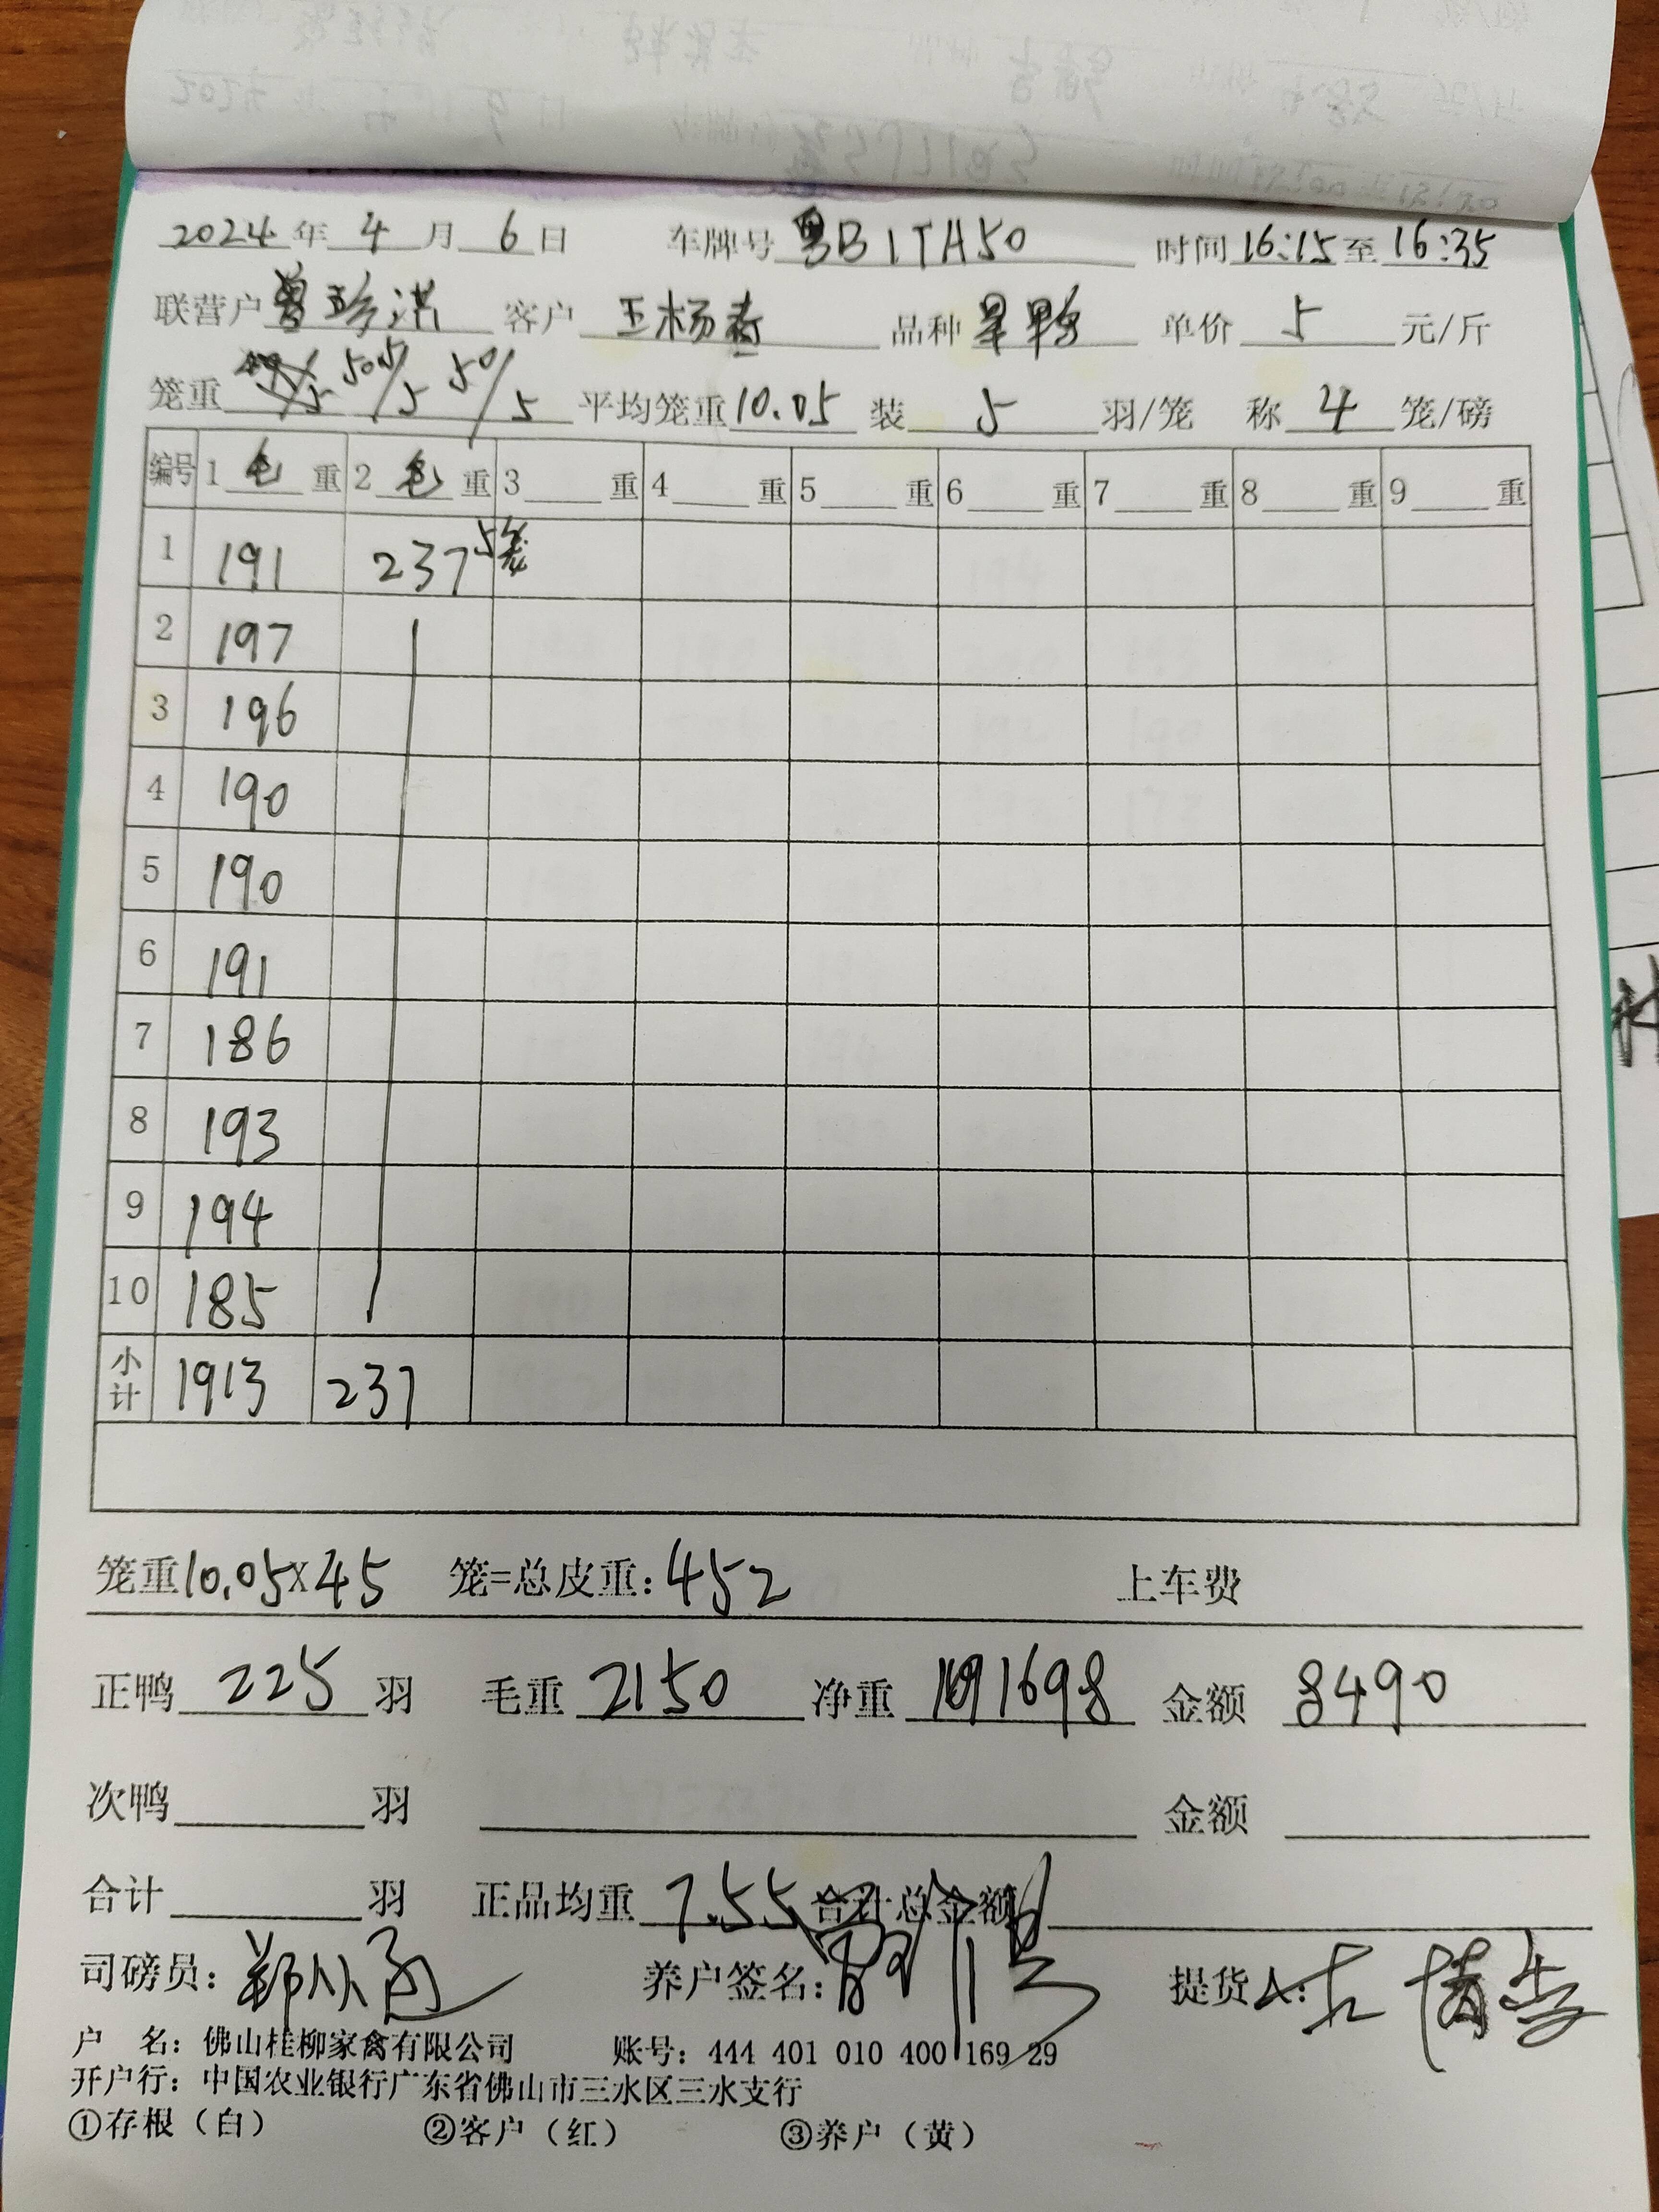 2024年4月6日 车牌号 粤B1TA50 时间16:15至16:35
联营户 曾珍洪 客户 王杨春 品种 旱鸭 单价 5 元/斤
笼重 50.5/5 50/5 平均笼重10.05 装 5 羽/笼 称 4 笼/磅
编号 1 毛 重 2 毛 重 3 重 4 重 5 重 6 重 7 重 8 重 9 重
1 191 237 5笼
2 197
3 196
4 190
5 190
6 191
7 186
8 193
9 194
10 185
小计 1913 237
笼重10.05X45 笼=总皮重:452 上车费
正鸭 225 羽 毛重 2150 净重 1698 金额 8490
次鸭 羽 金额
合计 羽 正品均重 7.55 合计总金额
司磅员: 养户签名: 提货人:
户 名: 佛山桂柳家禽有限公司 账号: 444 401 010 400 169 29
开户行: 中国农业银行广东省佛山市三水区三水支行
①存根（白） ②客户（红） ③养户（黄）